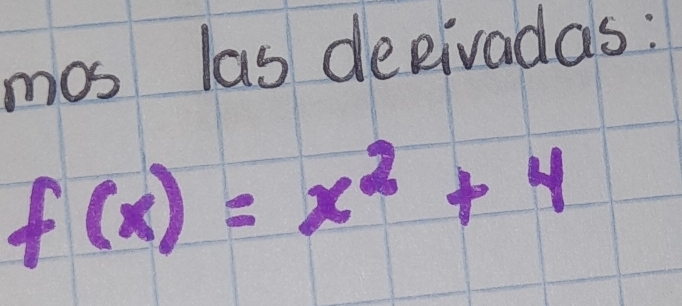 mos las derivadas:
f(x) = x² + 4